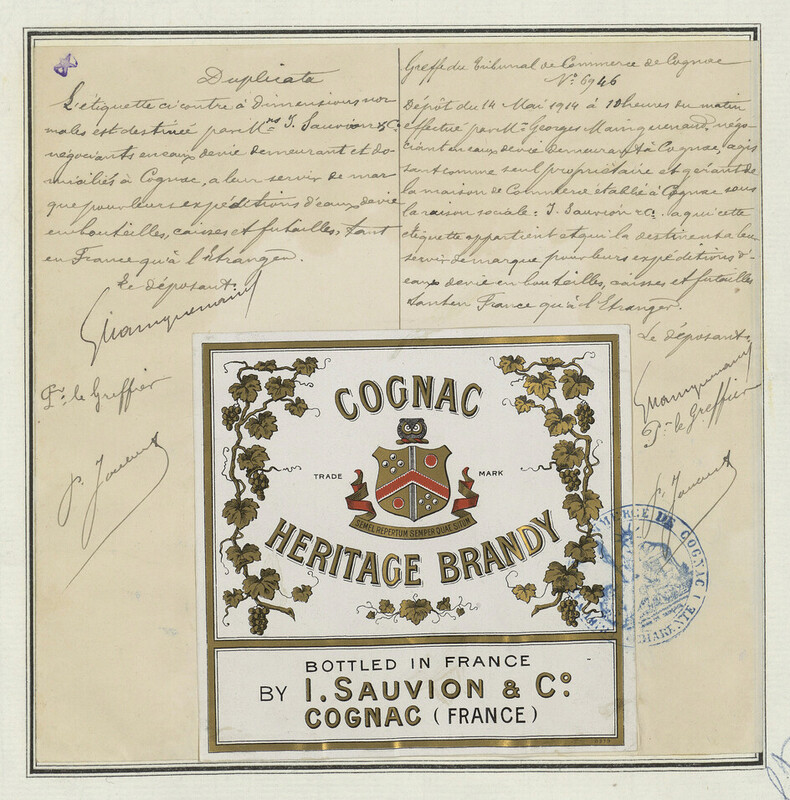 Duplicata
L'étiquette ci contre à dimensions nor
males est destinée par Mrs I. Sauvion & Co.
négociants en eaux devie demeurant et do-
miciliés à Cognac, a leur servir de mar
que pour leurs expéditions d'eaux devie
en bouteilles, caisses et futailles, tant
en France qu'à l'Etranger.
Le déposant.
Pr. le Greffier
Greffe du Tribunal de Commerce de Cognac
No. 6946
Dépôt du 14 Mai 1914 à 10 heures du matin
effectué par Mr Georges Mainguenaud, négo-
ciant en eaux devie demeurant à Cognac, agis
sant comme seul propriétaire et gérant de
la maison de Commerce établie à Cognac sous
la raison sociale: I. Sauvion & Co. a qui cette
étiquette appartient et qui la destinent a leur
servir de marque pour leurs expéditions d'-
eaux devie en bouteilles, caisses et futailles
tant en France qu'à l'Etranger.
Le déposant.
Pr. le Greffier
COGNAC
TRADE MARK
SEMEL REPERTUM SEMPER QUAESITUM
HERITAGE BRANDY
BOTTLED IN FRANCE
BY I. SAUVION & Co
COGNAC (FRANCE)
MERCE DE COGNAC
CHARENTE